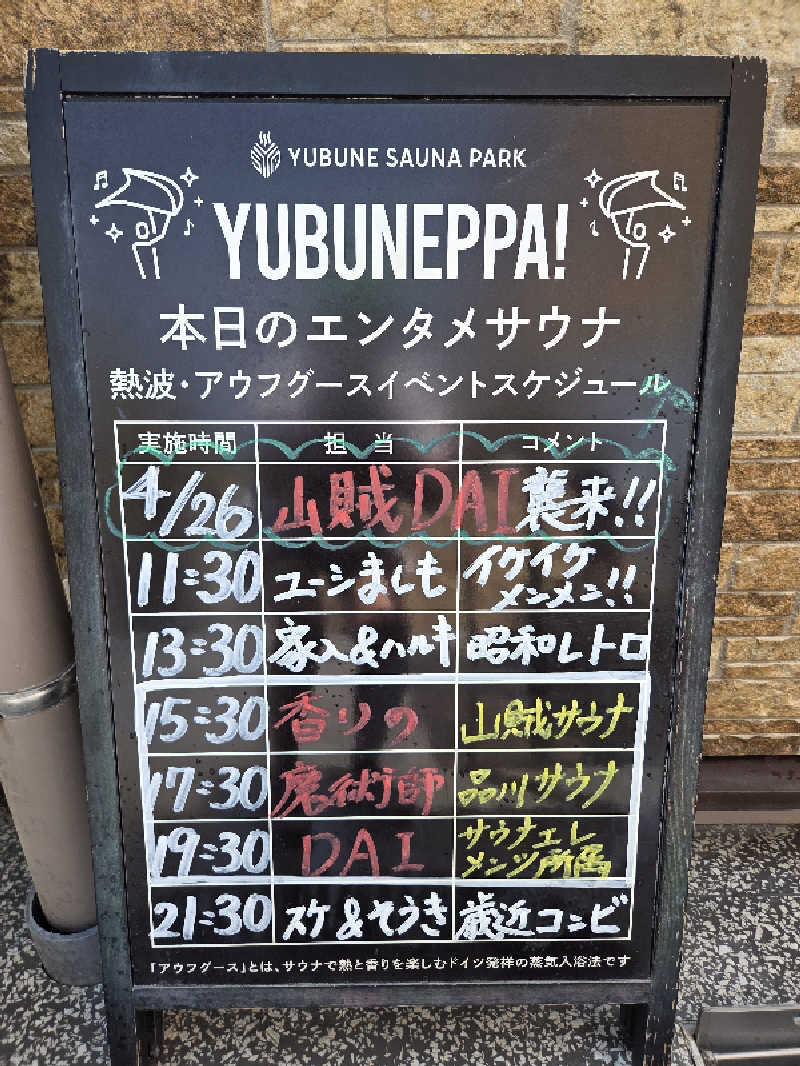 YUBUNE SAUNA PARK
YUBUNEPPA!
本日のエンタメサウナ
熱波・アウフグースイベントスケジュール
実施時間 担当 コメント
4/26 山賊DAI襲来!!
11:30 ユーシましも イケイケメンメン!!
13:30 家入&ハルキ 昭和レトロ
15:30 香りの 山賊サウナ
17:30 魔術師 品川サウナ
19:30 DAI サウナエレメンツ所属
21:30 スケ&そうき 最近コンビ
「アウフグース」とは、サウナで熱と香りを楽しむドイツ発祥の蒸気入浴法です